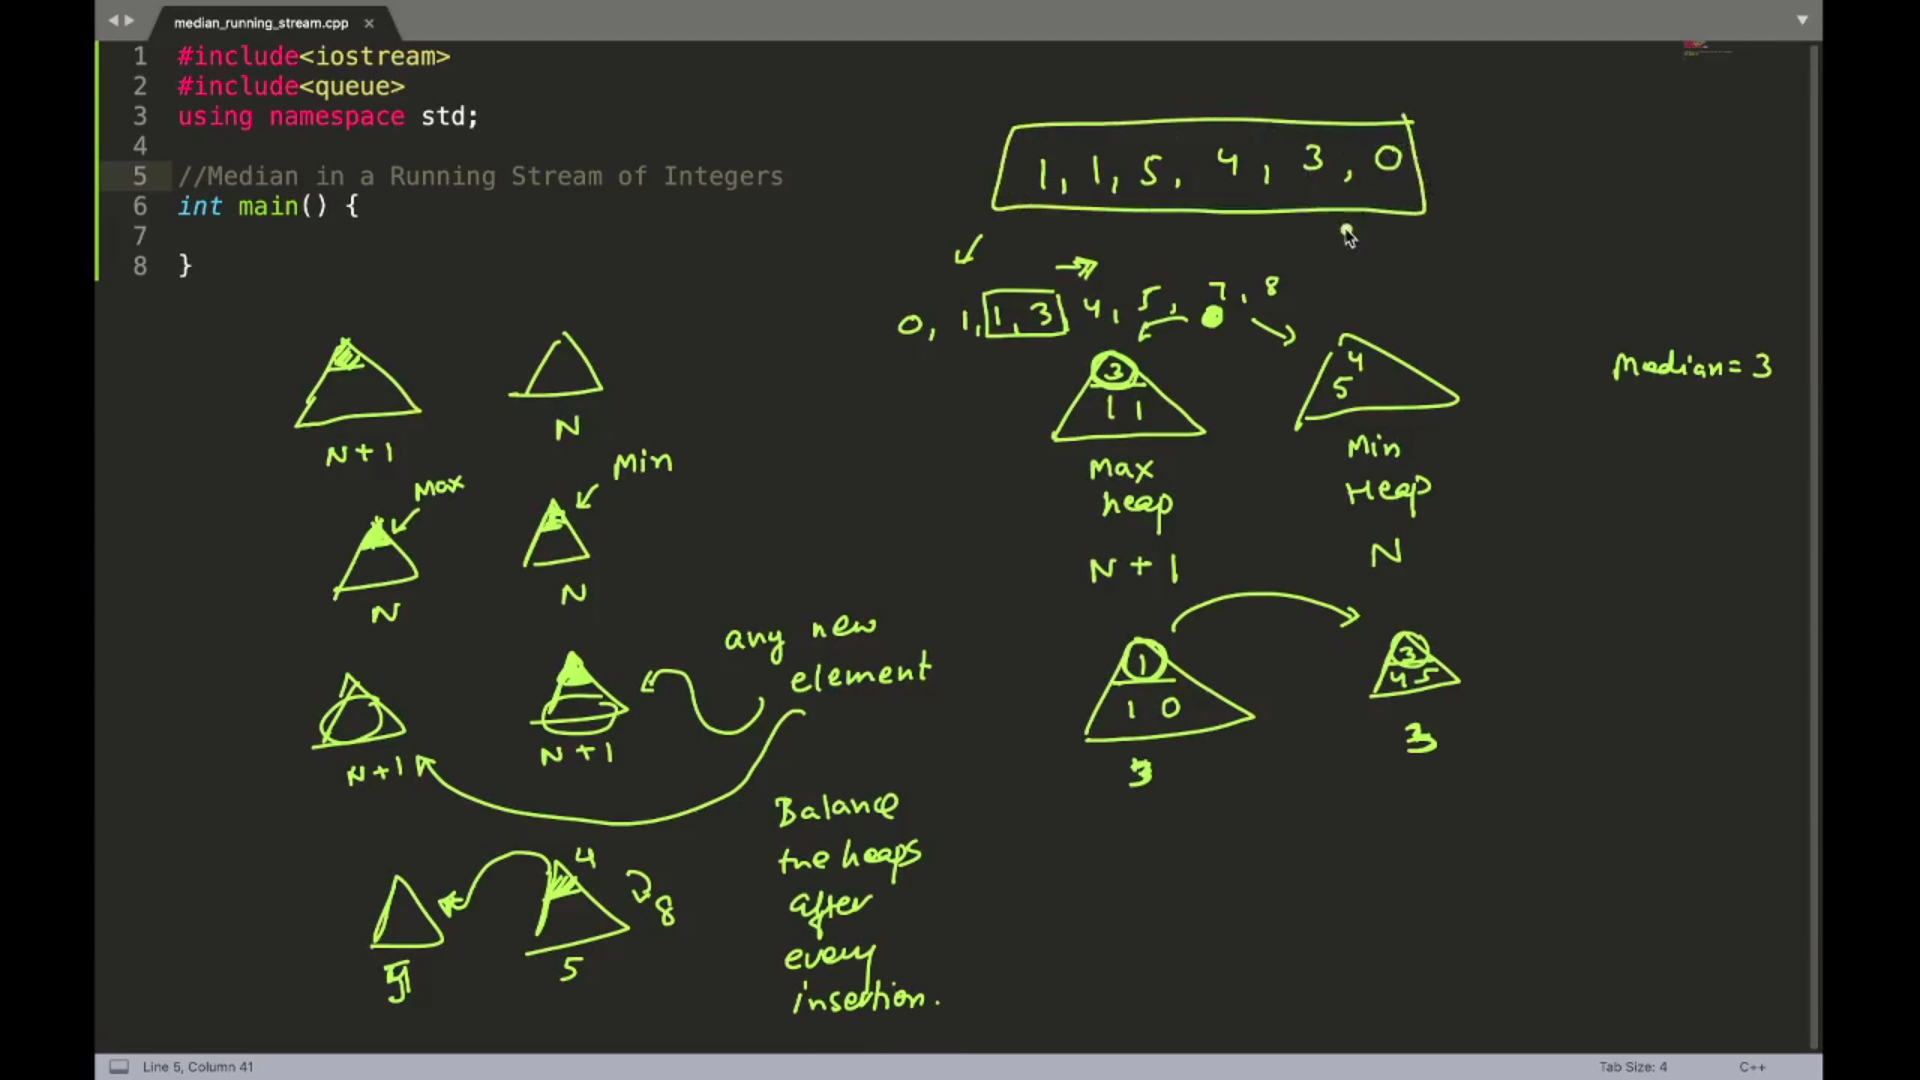 median_running_stream.cpp ×
1 #include<iostream>
2 #include<queue>
3 using namespace std;
4
5 //Median in a Running Stream of Integers
6 int main() {
7
8 }
1, 1, 5, 4, 3, 0
0, 1, 1, 3 4, 5, 7, 8
3
1 1
4
5
Median = 3
N+1
N
Max
heap
Min
Heap
N+1
N
Max
Min
N
N
any new
element
N+1
N+1
1
1 0
3
3
4 5
3
Balance
the heaps
after
every
insertion.
4
8
5
Line 5, Column 41
Tab Size: 4
C++